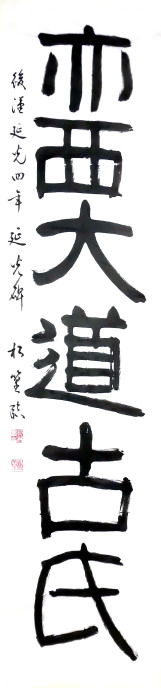 亦西大道古氏
後漢延光四年 延光碑 松篁臨